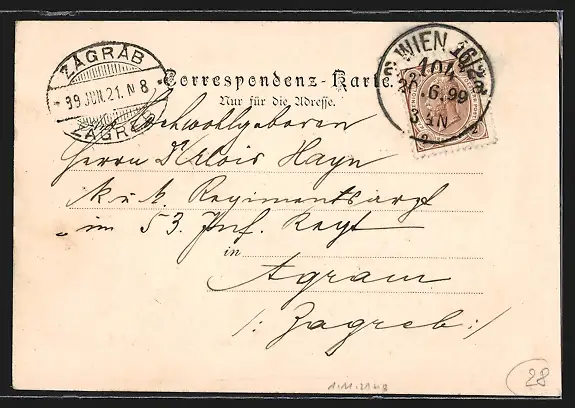 ZAGRAB
99 JUN. 21. N 8
ZAGREB
WIEN 16/2
104
6.99
8 3/4N
Correspondenz-Karte.
Nur für die Adresse.
Hochwohlgeboren
Herrn Dr Alois Hayn
k. u. k. Regimentsarzt
im 53. Inf. Regt
in Agram
/: Zagreb :/
28